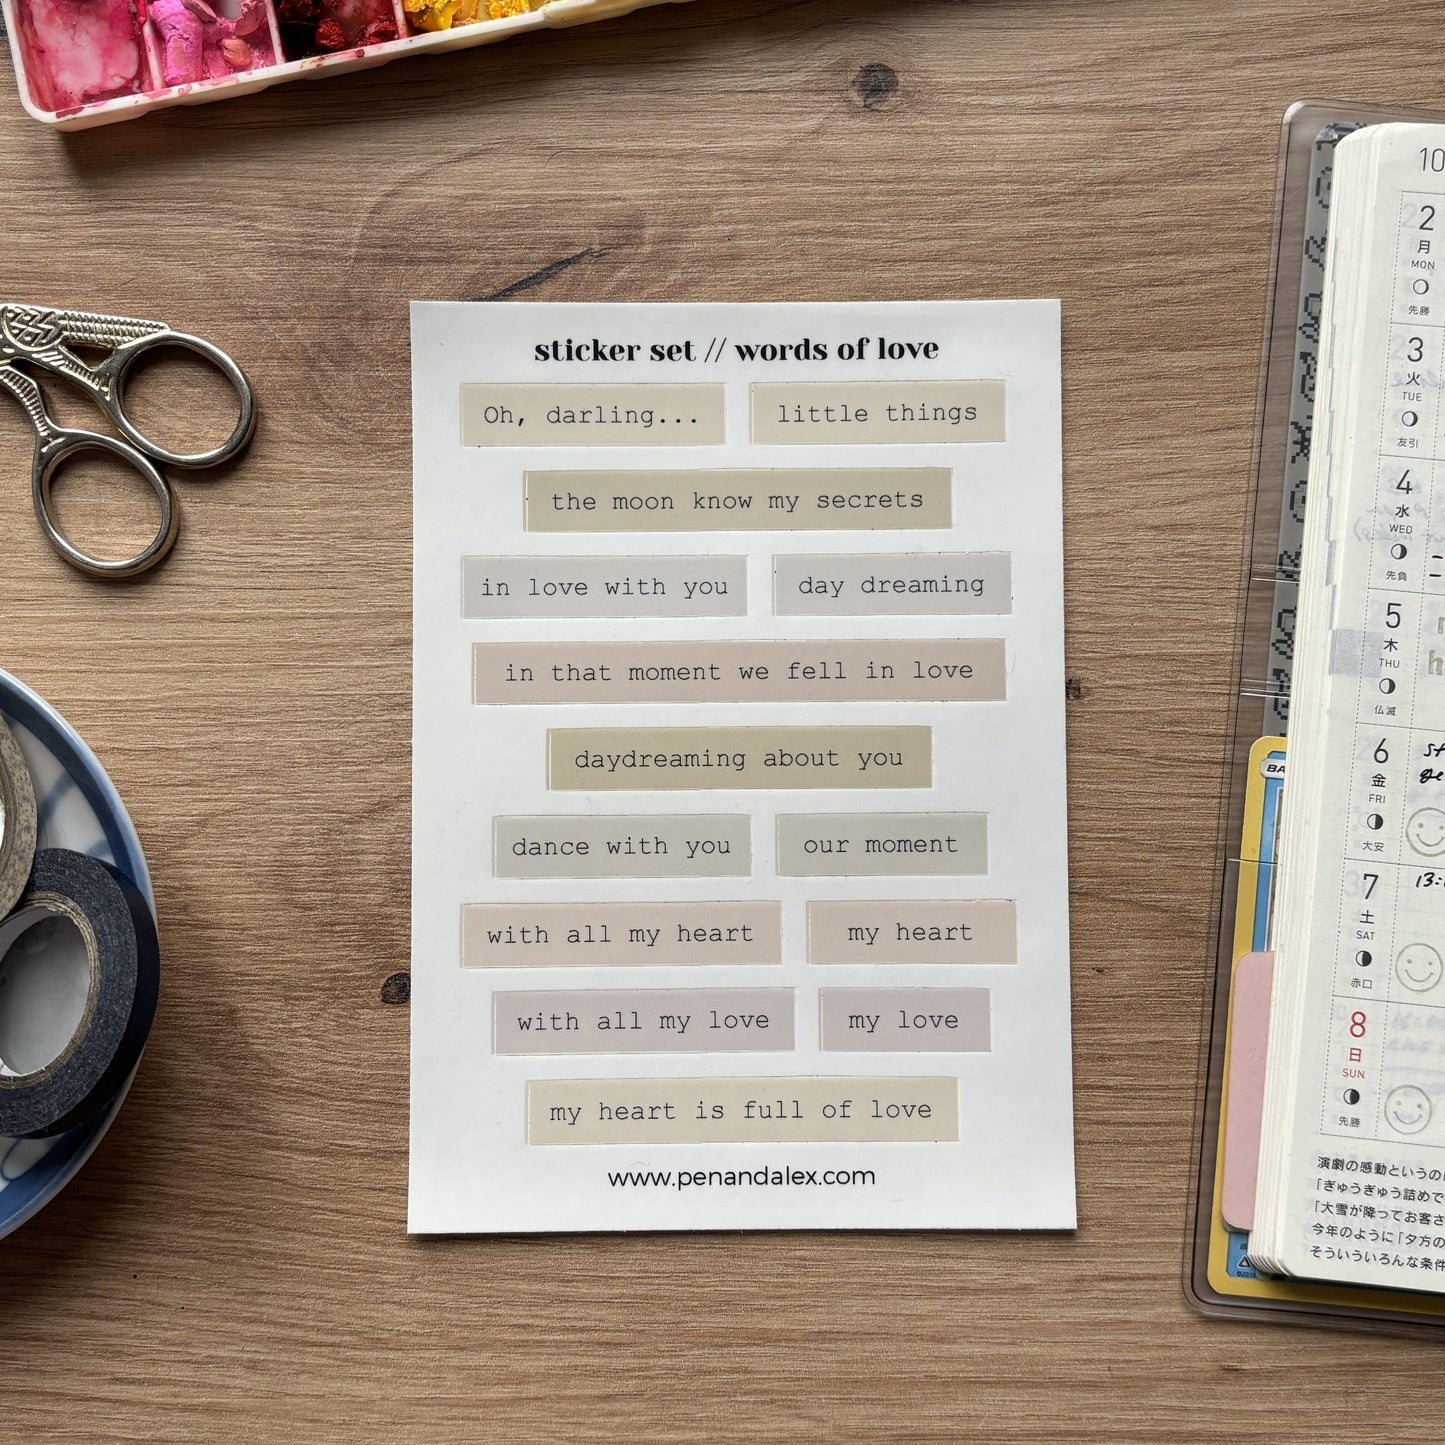 sticker set // words of love
Oh, darling...
little things
the moon know my secrets
in love with you
day dreaming
in that moment we fell in love
daydreaming about you
dance with you
our moment
with all my heart
my heart
with all my love
my love
my heart is full of love
www.penandalex.com
10
2
月
MON
先勝
3
火
TUE
友引
4
水
WED
先負
5
木
THU
仏滅
6
金
FRI
大安
7
土
SAT
赤口
8
日
SUN
先勝
13:
BA
演劇の感動というのは
「ぎゅうぎゅう詰めで
「大雪が降ってお客さ
今年のように「夕方の
そういういろんな条件